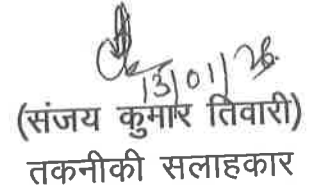 13/01/26
(संजय कुमार तिवारी)
तकनीकी सलाहकार